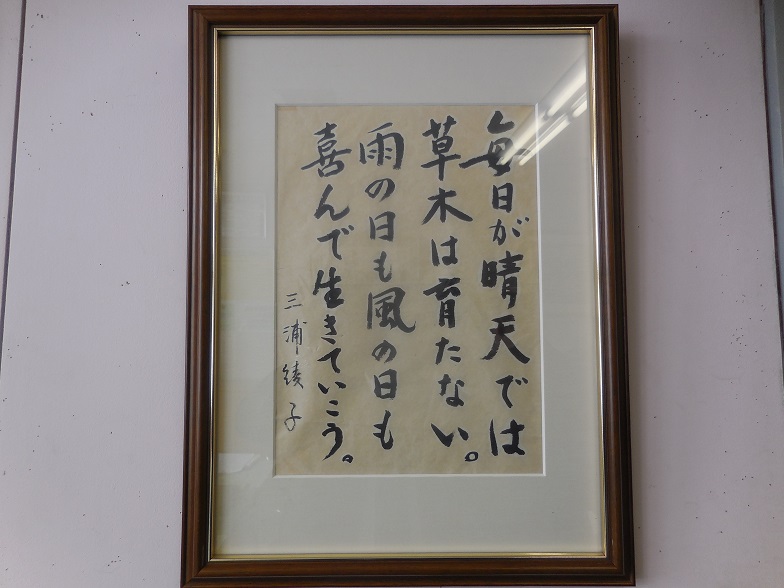 毎日が晴天では
草木は育たない。
雨の日も風の日も
喜んで生きていこう。
三浦綾子